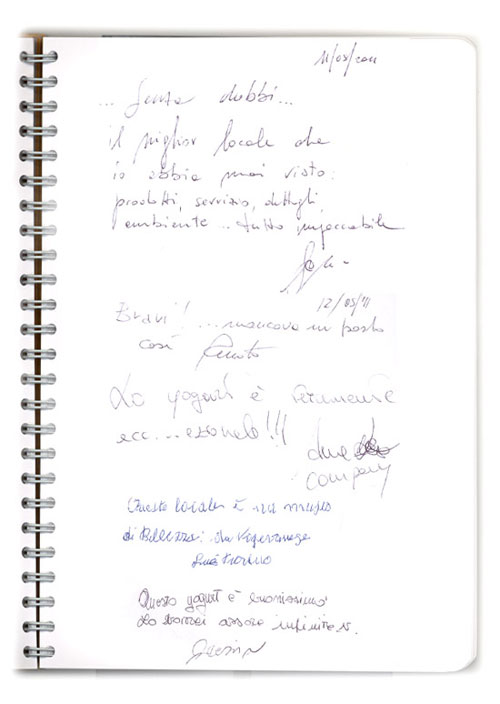 11/05/2011
... Senza dubbi...
il miglior locale che
io abbia mai visto:
prodotti, servizio, dettagli,
l'ambiente.. tutto impeccabile
12/05/11
Bravi! ... mancava un posto
così
Lo yogurt è veramente
ecc... ezionale!!!
company
Questo locale è un museo
di Bellezza: da Vigevanese
Questo yogurt è buonissimo
Lo